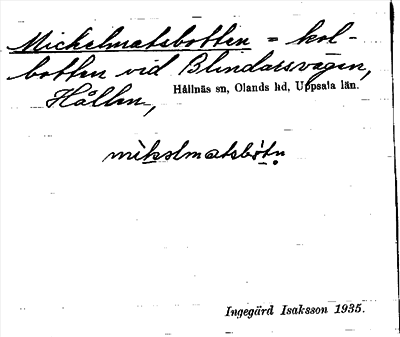 Mickelmatsbotten = kol-
botten vid Blindarsvägen,
Hållnäs sn, Olands hd, Uppsala län.
Hållen,
mikəlmatsbòtn
Ingegärd Isaksson 1935.